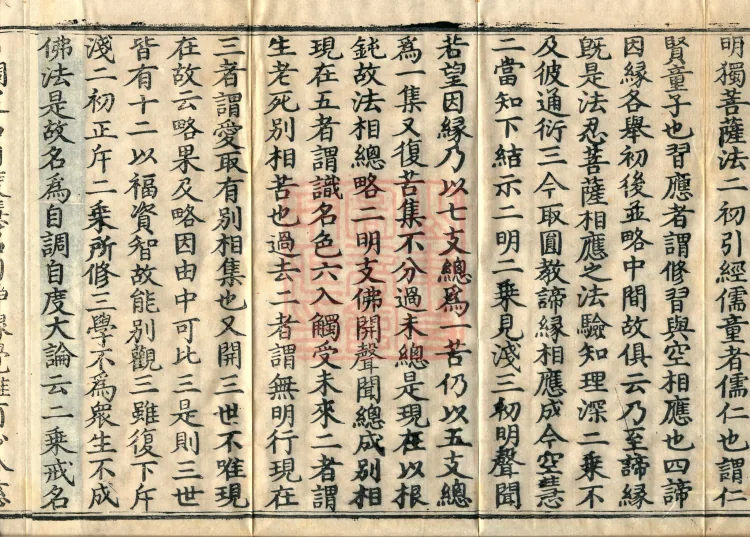 明獨菩薩法二初引經儒童者儒仁也謂仁
賢童子也習應者謂修習與空相應也四諦
因緣各舉初後並略中間故俱云乃至諦緣
既是法忍菩薩相應之法驗知理深二乘不
及彼通衍三今取圓教諦緣相應成今空慧
二當知下結示二明二乘見淺三初明聲聞
若望因緣乃以七支總為一苦仍以五支總
為一集又復苦集不分過未總是現在以根
鈍故法相總略二明支佛開聲聞總成別相
現在五者謂識名色六入觸受未來二者謂
生老死別相苦也過去二者謂無明行現在
三者謂愛取有別相集也又開三世不唯現
在故云略果及略因由中可比三是則三世
皆有十二以福資智故能別觀三雖復下斥
淺二初正斥二乘所修三學不為眾生不成
佛法是故名為自調自度大論云二乘戒名